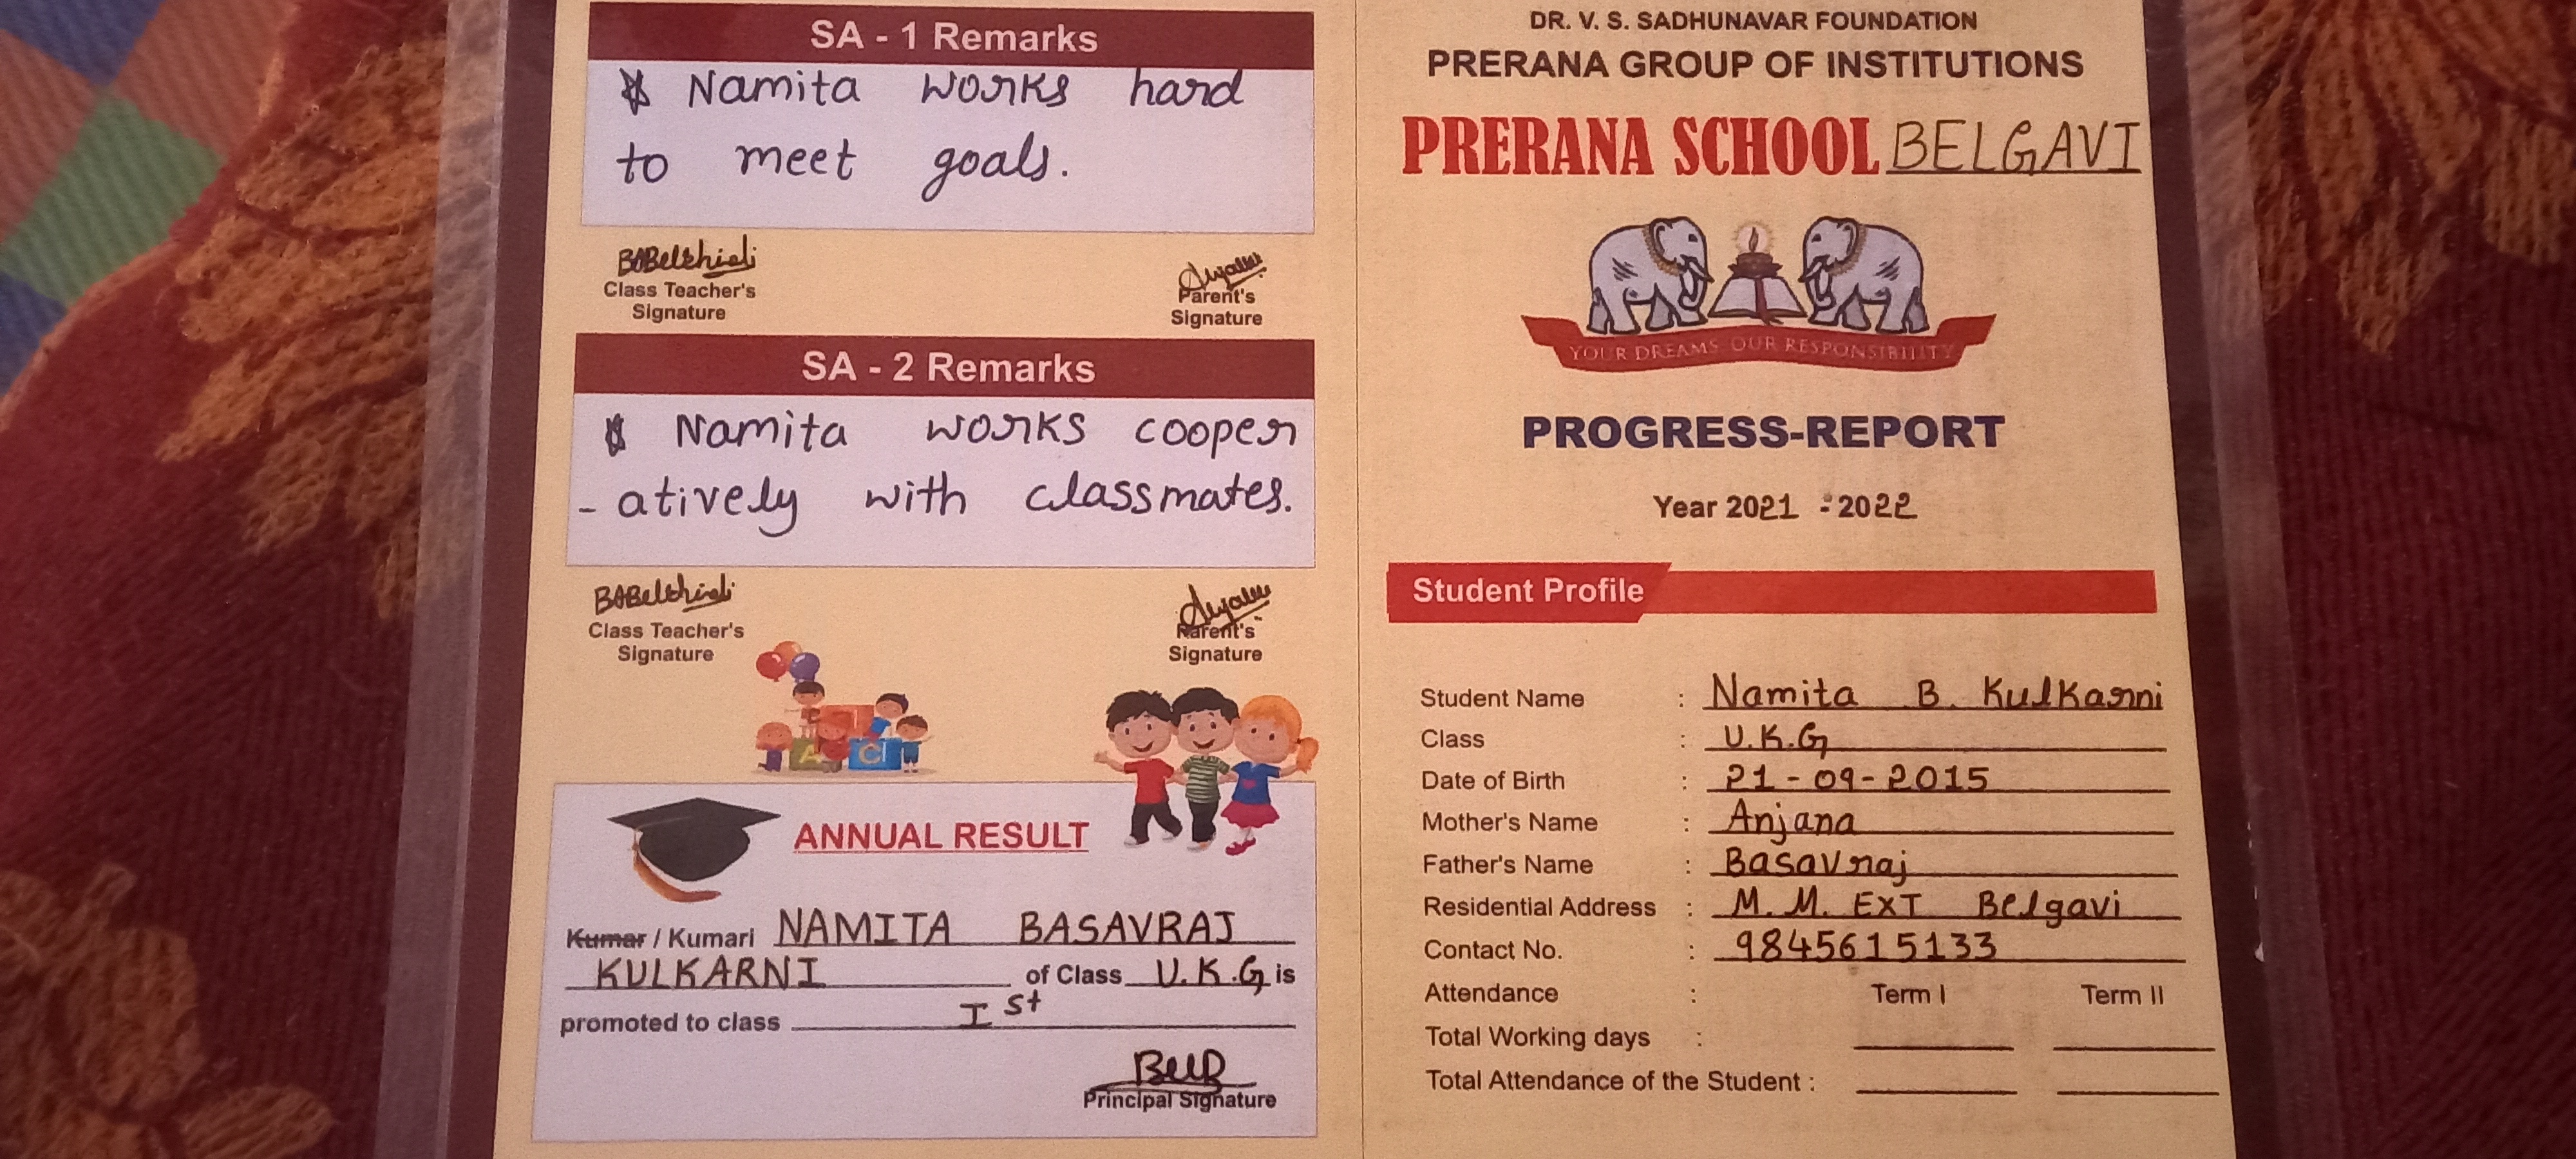 SA - 1 Remarks
Namita works hard
to meet goals.
Class Teacher's
Signature
Parent's
Signature
SA - 2 Remarks
Namita works cooper
- atively with classmates.
Class Teacher's
Signature
Parent's
Signature
A C
ANNUAL RESULT
Kumar / Kumari NAMITA BASAVRAJ
KULKARNI of Class U.K.G is
promoted to class I st
Principal Signature
DR. V. S. SADHUNAVAR FOUNDATION
PRERANA GROUP OF INSTITUTIONS
PRERANA SCHOOL BELGAVI
YOUR DREAMS OUR RESPONSIBILITY
PROGRESS-REPORT
Year 2021 - 2022
Student Profile
Student Name : Namita B. Kulkarni
Class : U.K.G
Date of Birth : 21-09-2015
Mother's Name : Anjana
Father's Name : Basavraj
Residential Address : M.M. EXT Belgavi
Contact No. : 9845615133
Attendance : Term I Term II
Total Working days :
Total Attendance of the Student :